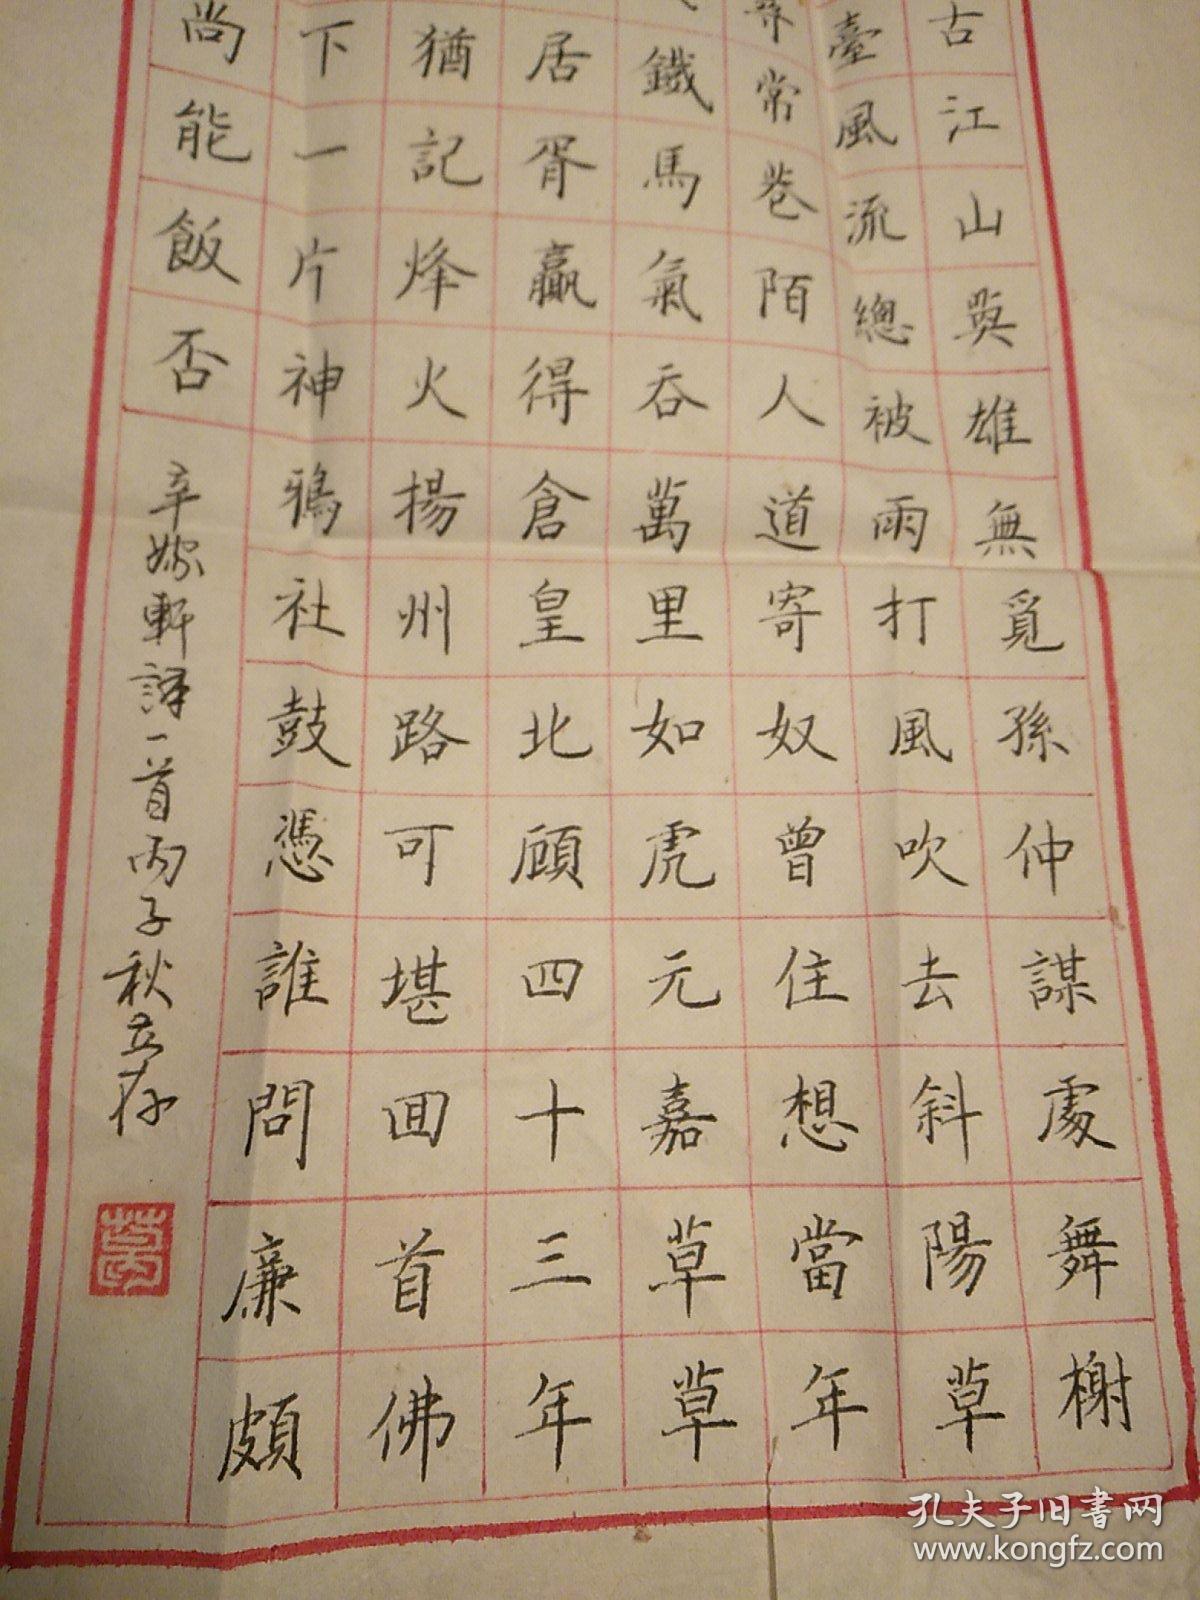 古江山英雄無覓孫仲謀處舞榭
臺風流總被雨打風吹去斜陽草
常巷陌人道寄奴曾住想當年
鐵馬氣吞萬里如虎元嘉草草
居胥贏得倉皇北顧四十三年
猶記烽火揚州路可堪回首佛
下一片神鴉社鼓憑誰問廉頗
尚能飯否
辛嫁軒譯一首丙子秋立存
孔夫子旧书网
www.kongfz.com